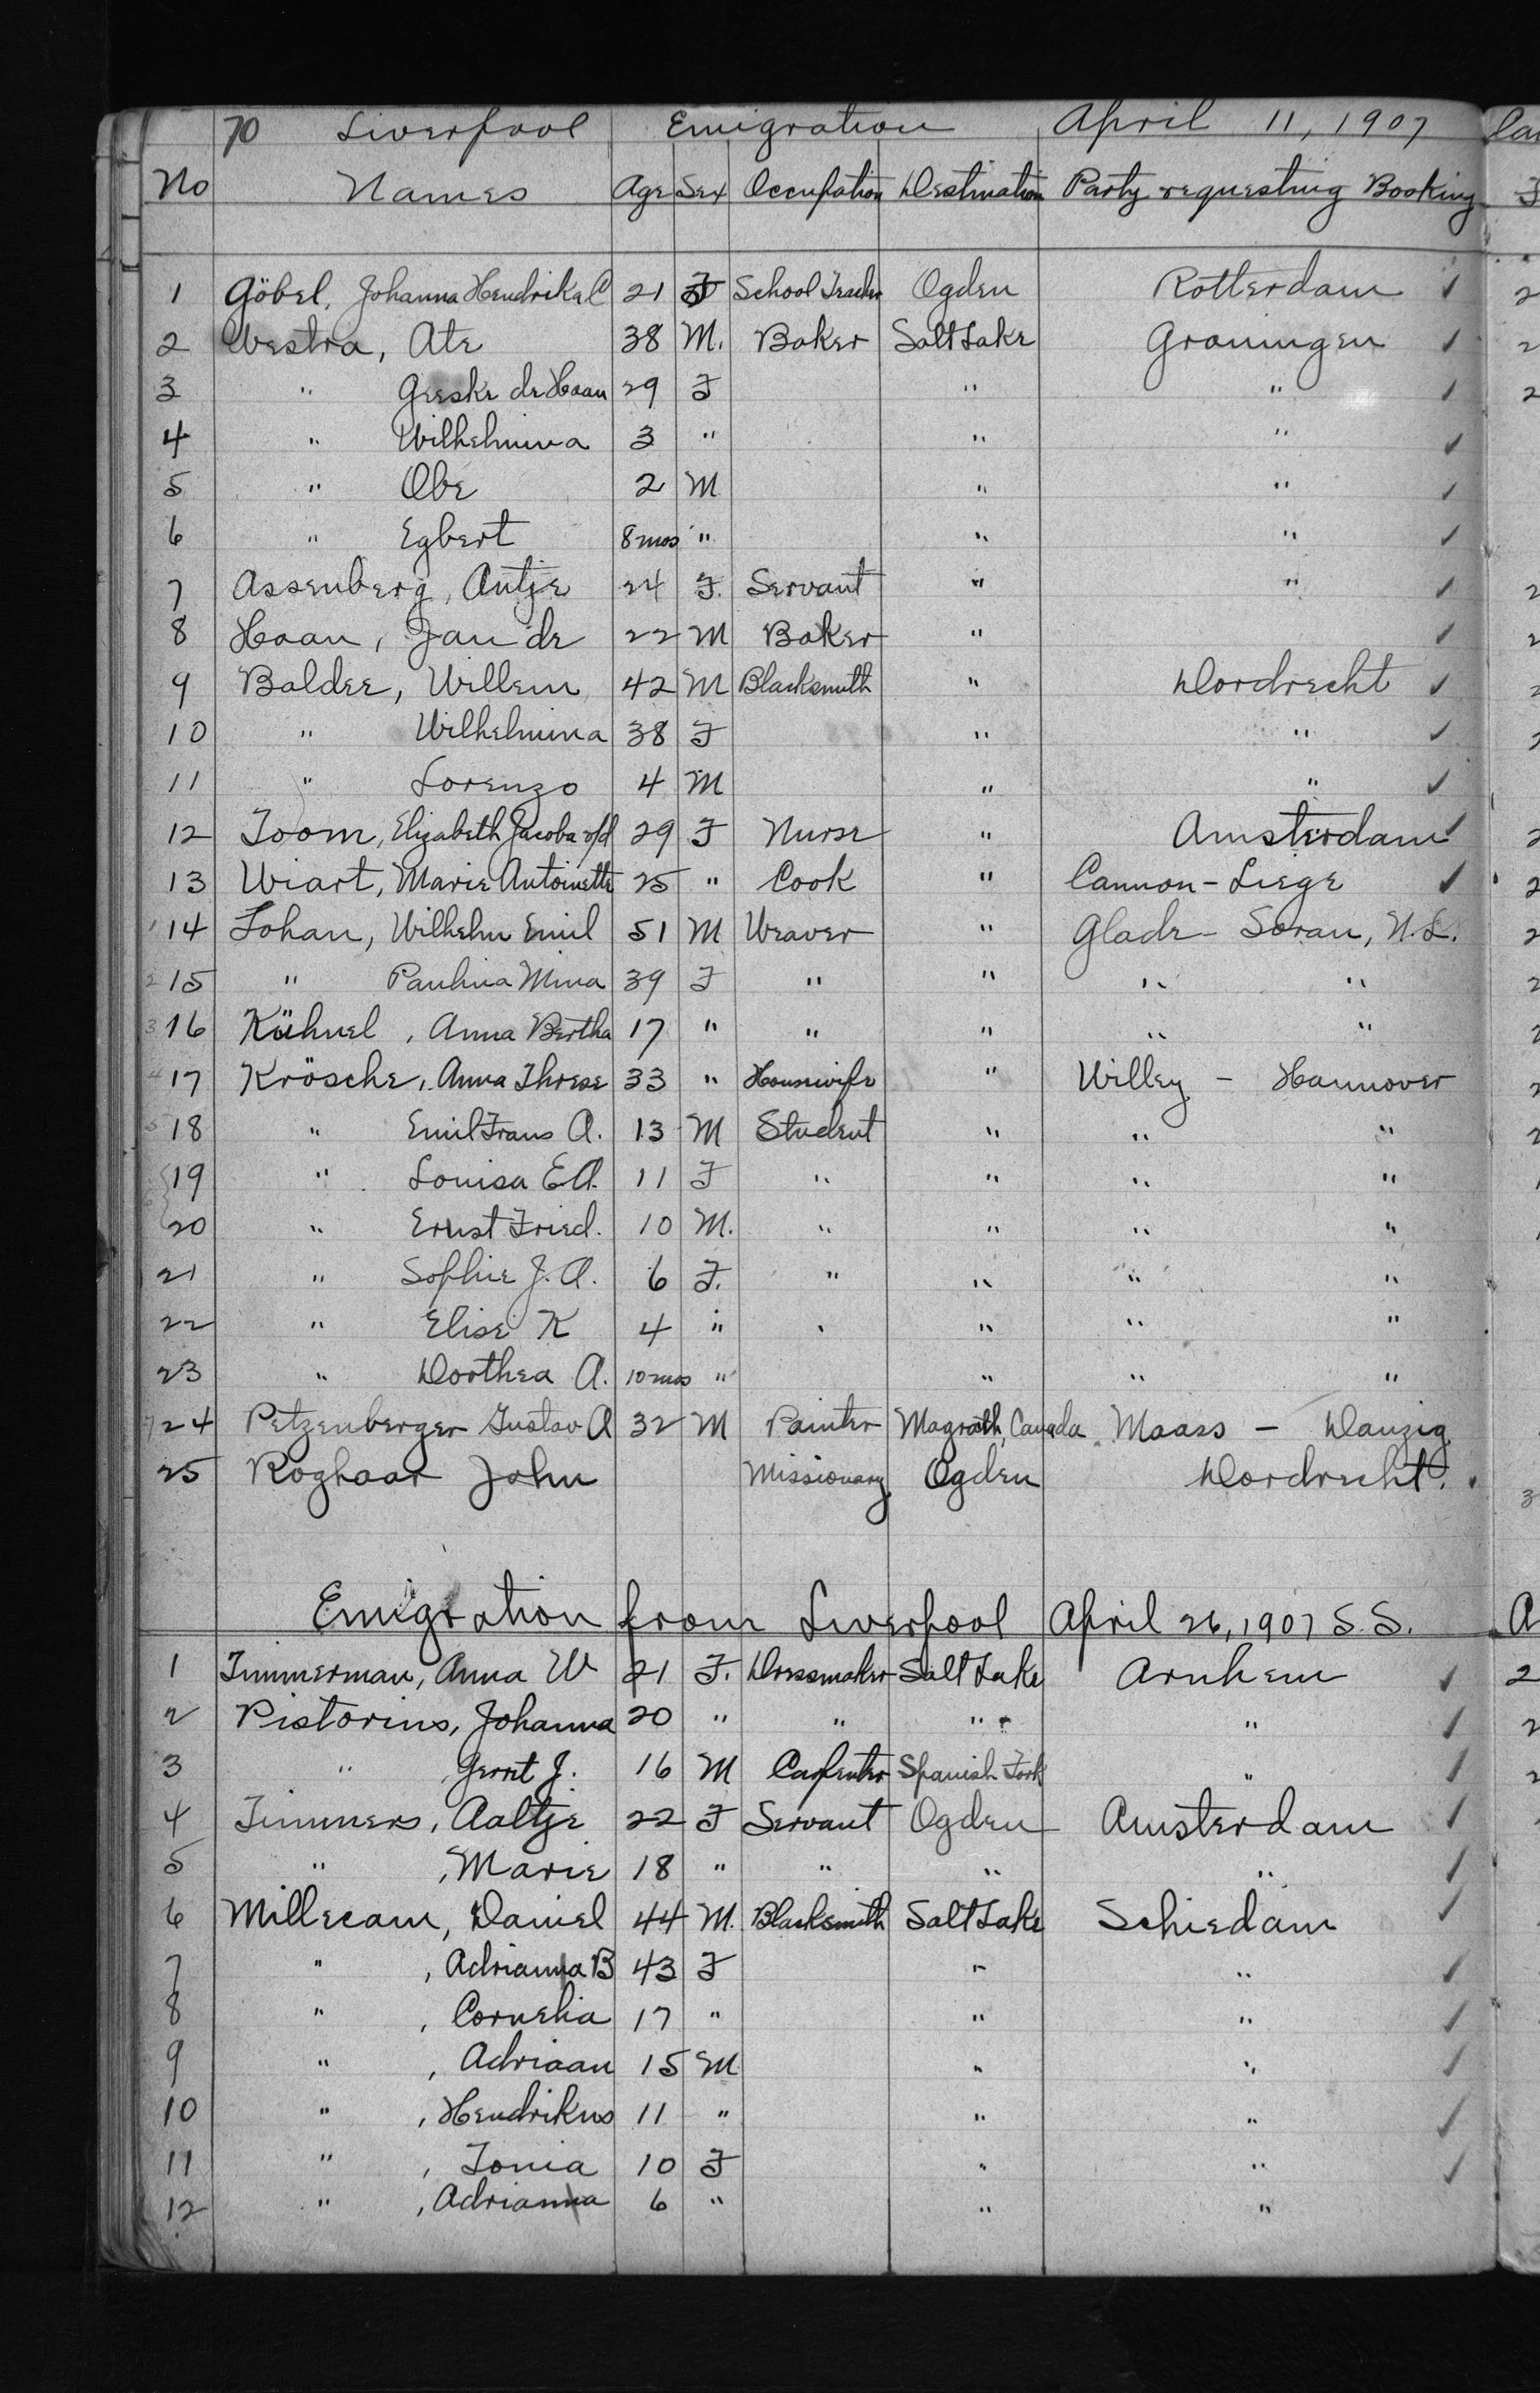 70 Liverpool Emigration April 11, 1907
No Names Age Sex Occupation Destination Party requesting Booking
1 Göbel, Johanna Hendrika C 21 F School Teacher Ogden Rotterdam ✓
2 Westra, Ate 38 M. Baker Salt Lake Groningen ✓
3 " Geeske de Haan 29 F " " ✓
4 " Wilhelmina 3 " " " ✓
5 " Obe 2 M " " ✓
6 " Egbert 8 mos " " " ✓
7 Assenberg, Antje 24 F. Servant " " ✓
8 Haan, Jan de 22 M Baker " ✓
9 Baldee, Willem 42 M Blacksmith " Dordrecht ✓
10 " Wilhelmina 38 F " " ✓
11 " Lorenzo 4 M " " ✓
12 Toom, Elizabeth Jacoba v/d 29 F Nurse " Amsterdam ✓
13 Wiart, Marie Antoinette 25 " Cook " Cannon - Liege ✓
14 Lohan, Wilhelm Emil 51 M Weaver " Glade - Soran, N.L.
15 " Paulina Mina 39 F " " " "
16 Kühnel, Anna Bertha 17 " " " " "
17 Krösche, Anna Threse 33 " Housewife " Willey - Hannover
18 " Emil Frans A. 13 M Student " " "
19 " Louisa E.A. 11 F " " " "
20 " Ernst Fried. 10 M. " " " "
21 " Sophie J. A. 6 F. " " " "
22 " Elise K 4 " " " "
23 " Dorthea A. 10 mos " " " "
24 Petzenberger Gustav A 32 M Painter Magrath, Canada Maass - Danzig
25 Roghaar John Missionary Ogden Dordrecht.
Emigration from Liverpool April 26, 1907 S.S.
1 Timmerman, Anna W 21 F. Dressmaker Salt Lake Arnhem ✓
2 Pistorius, Johanna 20 " " " " ✓
3 " Gerrit J. 16 M Carpenter Spanish Fork " ✓
4 Timmers, Aaltje 22 F Servant Ogden Amsterdam ✓
5 " , Marie 18 " " " " ✓
6 Millecam, Daniel 44 M. Blacksmith Salt Lake Schiedam ✓
7 " , Adrianna B 43 F " " ✓
8 " , Cornelia 17 " " " ✓
9 " , Adriaan 15 M " " ✓
10 " , Hendrikus 11 " " " ✓
11 " , Tonia 10 F " " ✓
12 " , Adrianna 6 " " "